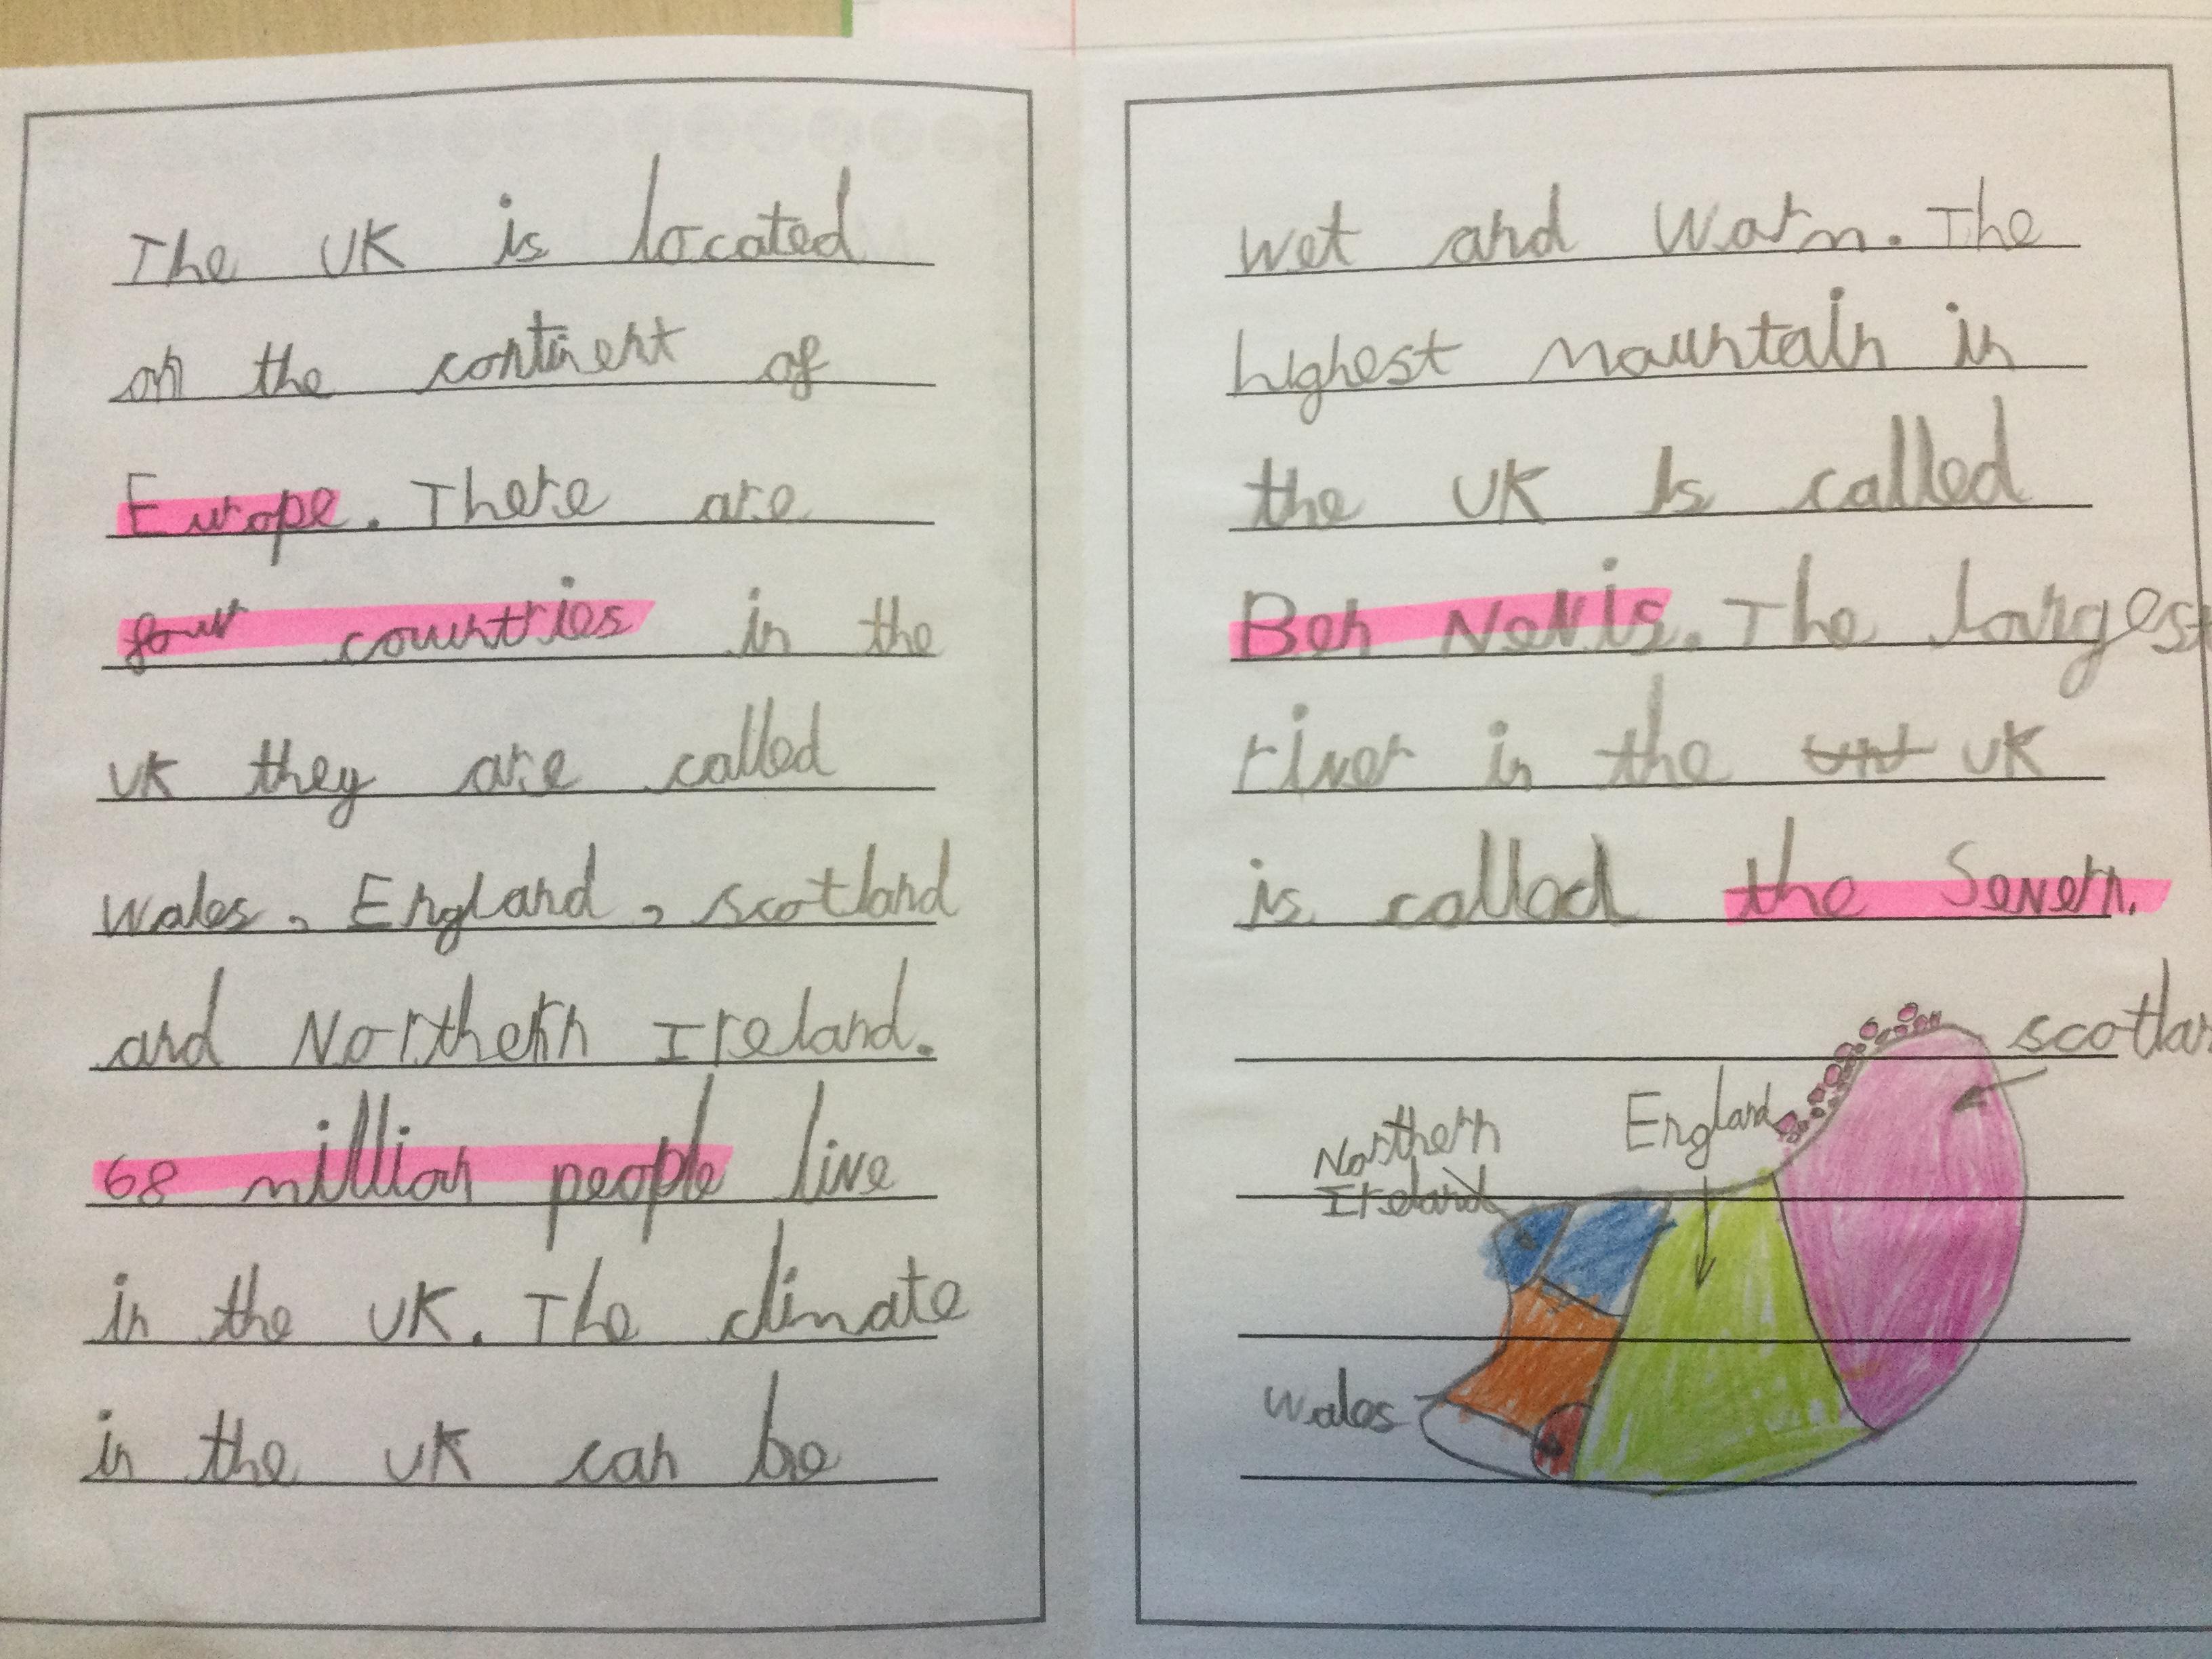 The UK is located
on the continent of
Europe. There are
four countries in the
UK they are called
wales, England, scotland
and Northern Ireland.
68 million people live
in the UK. The climate
in the UK can be
wet and warm. The
highest mountain in
the UK is called
Ben Nevis. The largest
river in the UK
is called the Severn.
scotlan
England
Northern
Ireland
wales